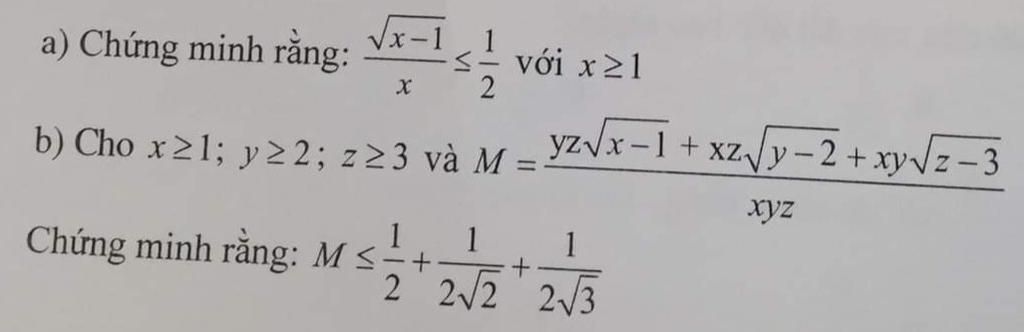 a) Chứng minh rằng: $\frac{\sqrt{x-1}}{x} \le \frac{1}{2}$ với $x \ge 1$
b) Cho $x \ge 1; y \ge 2; z \ge 3$ và $M = \frac{yz\sqrt{x-1} + xz\sqrt{y-2} + xy\sqrt{z-3}}{xyz}$
Chứng minh rằng: $M \le \frac{1}{2} + \frac{1}{2\sqrt{2}} + \frac{1}{2\sqrt{3}}$